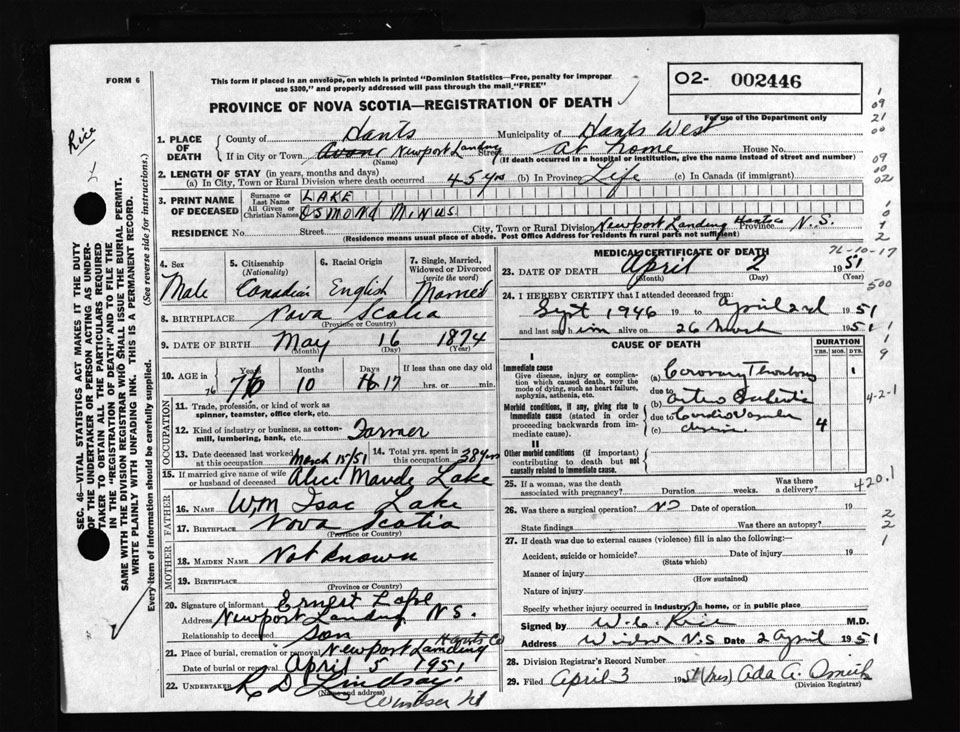 FORM 6
This form if placed in an envelope, on which is printed "Dominion Statistics—Free, penalty for improper
use $300," and properly addressed will pass through the mail "FREE"
O2- 002446
For use of the Department only
PROVINCE OF NOVA SCOTIA—REGISTRATION OF DEATH
Rice
SEC. 46—VITAL STATISTICS ACT MAKES IT THE DUTY
OF THE UNDERTAKER OR PERSON ACTING AS UNDER-
TAKER TO OBTAIN ALL THE PARTICULARS REQUIRED
IN THE "REGISTRATION OF DEATH" AND TO FILE THE
SAME WITH THE DIVISION REGISTRAR WHO SHALL ISSUE THE BURIAL PERMIT.
WRITE PLAINLY WITH UNFADING INK. THIS IS A PERMANENT RECORD.
Every item of information should be carefully supplied. (See reverse side for instructions.)
1. PLACE OF DEATH County of Hants Municipality of Hants West
If in City or Town Newport Landing Street at home House No.
(Name) (If death occurred in a hospital or institution, give the name instead of street and number)
2. LENGTH OF STAY (in years, months and days)
(a) In City, Town or Rural Division where death occurred 45 yrs (b) In Province Life (c) In Canada (if immigrant)
3. PRINT NAME OF DECEASED Surname or Last Name LAKE
All Given or Christian Names OSMOND MINUS
RESIDENCE No. Street City, Town or Rural Division Newport Landing Hants Co Province N.S.
(Residence means usual place of abode. Post Office Address for residents in rural parts not sufficient)
4. Sex Male
5. Citizenship (Nationality) Canadian
6. Racial Origin English
7. Single, Married, Widowed or Divorced (write the word) Married
8. BIRTHPLACE Nova Scotia
(Province or Country)
9. DATE OF BIRTH May 16 1874
(Month) (Day) (Year)
10. AGE in Years Months Days If less than one day old
76 10 17 hrs. or min.
OCCUPATION
11. Trade, profession, or kind of work as spinner, teamster, office clerk, etc.
12. Kind of industry or business, as cotton-mill, lumbering, bank, etc. Farmer
13. Date deceased last worked at this occupation March 15/51
14. Total yrs. spent in this occupation 38 yrs
15. If married give name of wife or husband of deceased Alice Maude Lake
FATHER
16. Name Wm Isac Lake
17. Birthplace Nova Scotia
(Province or Country)
MOTHER
18. MAIDEN NAME Not Known
19. BIRTHPLACE
(Province or Country)
20. Signature of informant Ernest Lake
Address Newport Landing N S.
Relationship to deceased Son
21. Place of burial, cremation or removal Newport Landing Hants Co
Date of burial or removal April 5 1951
22. UNDERTAKER R D Lindsay
(Name and address)
Windsor NS
MEDICAL CERTIFICATE OF DEATH
76-10-17
23. DATE OF DEATH April 2 1951
(Month) (Day) (Year)
24. I HEREBY CERTIFY that I attended deceased from
Sept 1946 19 to April 2nd 1951
and last saw him alive on 26 March 1951
CAUSE OF DEATH DURATION
YRS. MOS. DYS.
I
Immediate cause
Give disease, injury or complication which caused death, NOT the mode of dying, such as heart failure, asphyxia, asthenia, etc.
(a) Coronary Thrombosis 1
due to
(b)
Morbid conditions, if any, giving rise to Immediate cause (stated in order proceeding backwards from immediate cause).
due to Cardio Vascular
(c) disease 4
II
Other morbid conditions (if important) contributing to death but not causally related to immediate cause.
25. If a woman, was the death associated with pregnancy? Duration weeks. Was there a delivery?
420.1
26. Was there a surgical operation? no Date of operation 19
State findings Was there an autopsy?
27. If death was due to external causes (violence) fill in also the following:—
Accident, suicide or homicide? Date of injury 19
(State which)
Manner of injury
(How sustained)
Nature of injury
Specify whether injury occurred in industry, in home, or in public place
Signed by W. C. Rice M.D.
Address Windsor N.S Date 2 April 1951
28. Division Registrar's Record Number
29. Filed April 3 1951 (Mrs) Ada A.
(Division Registrar)